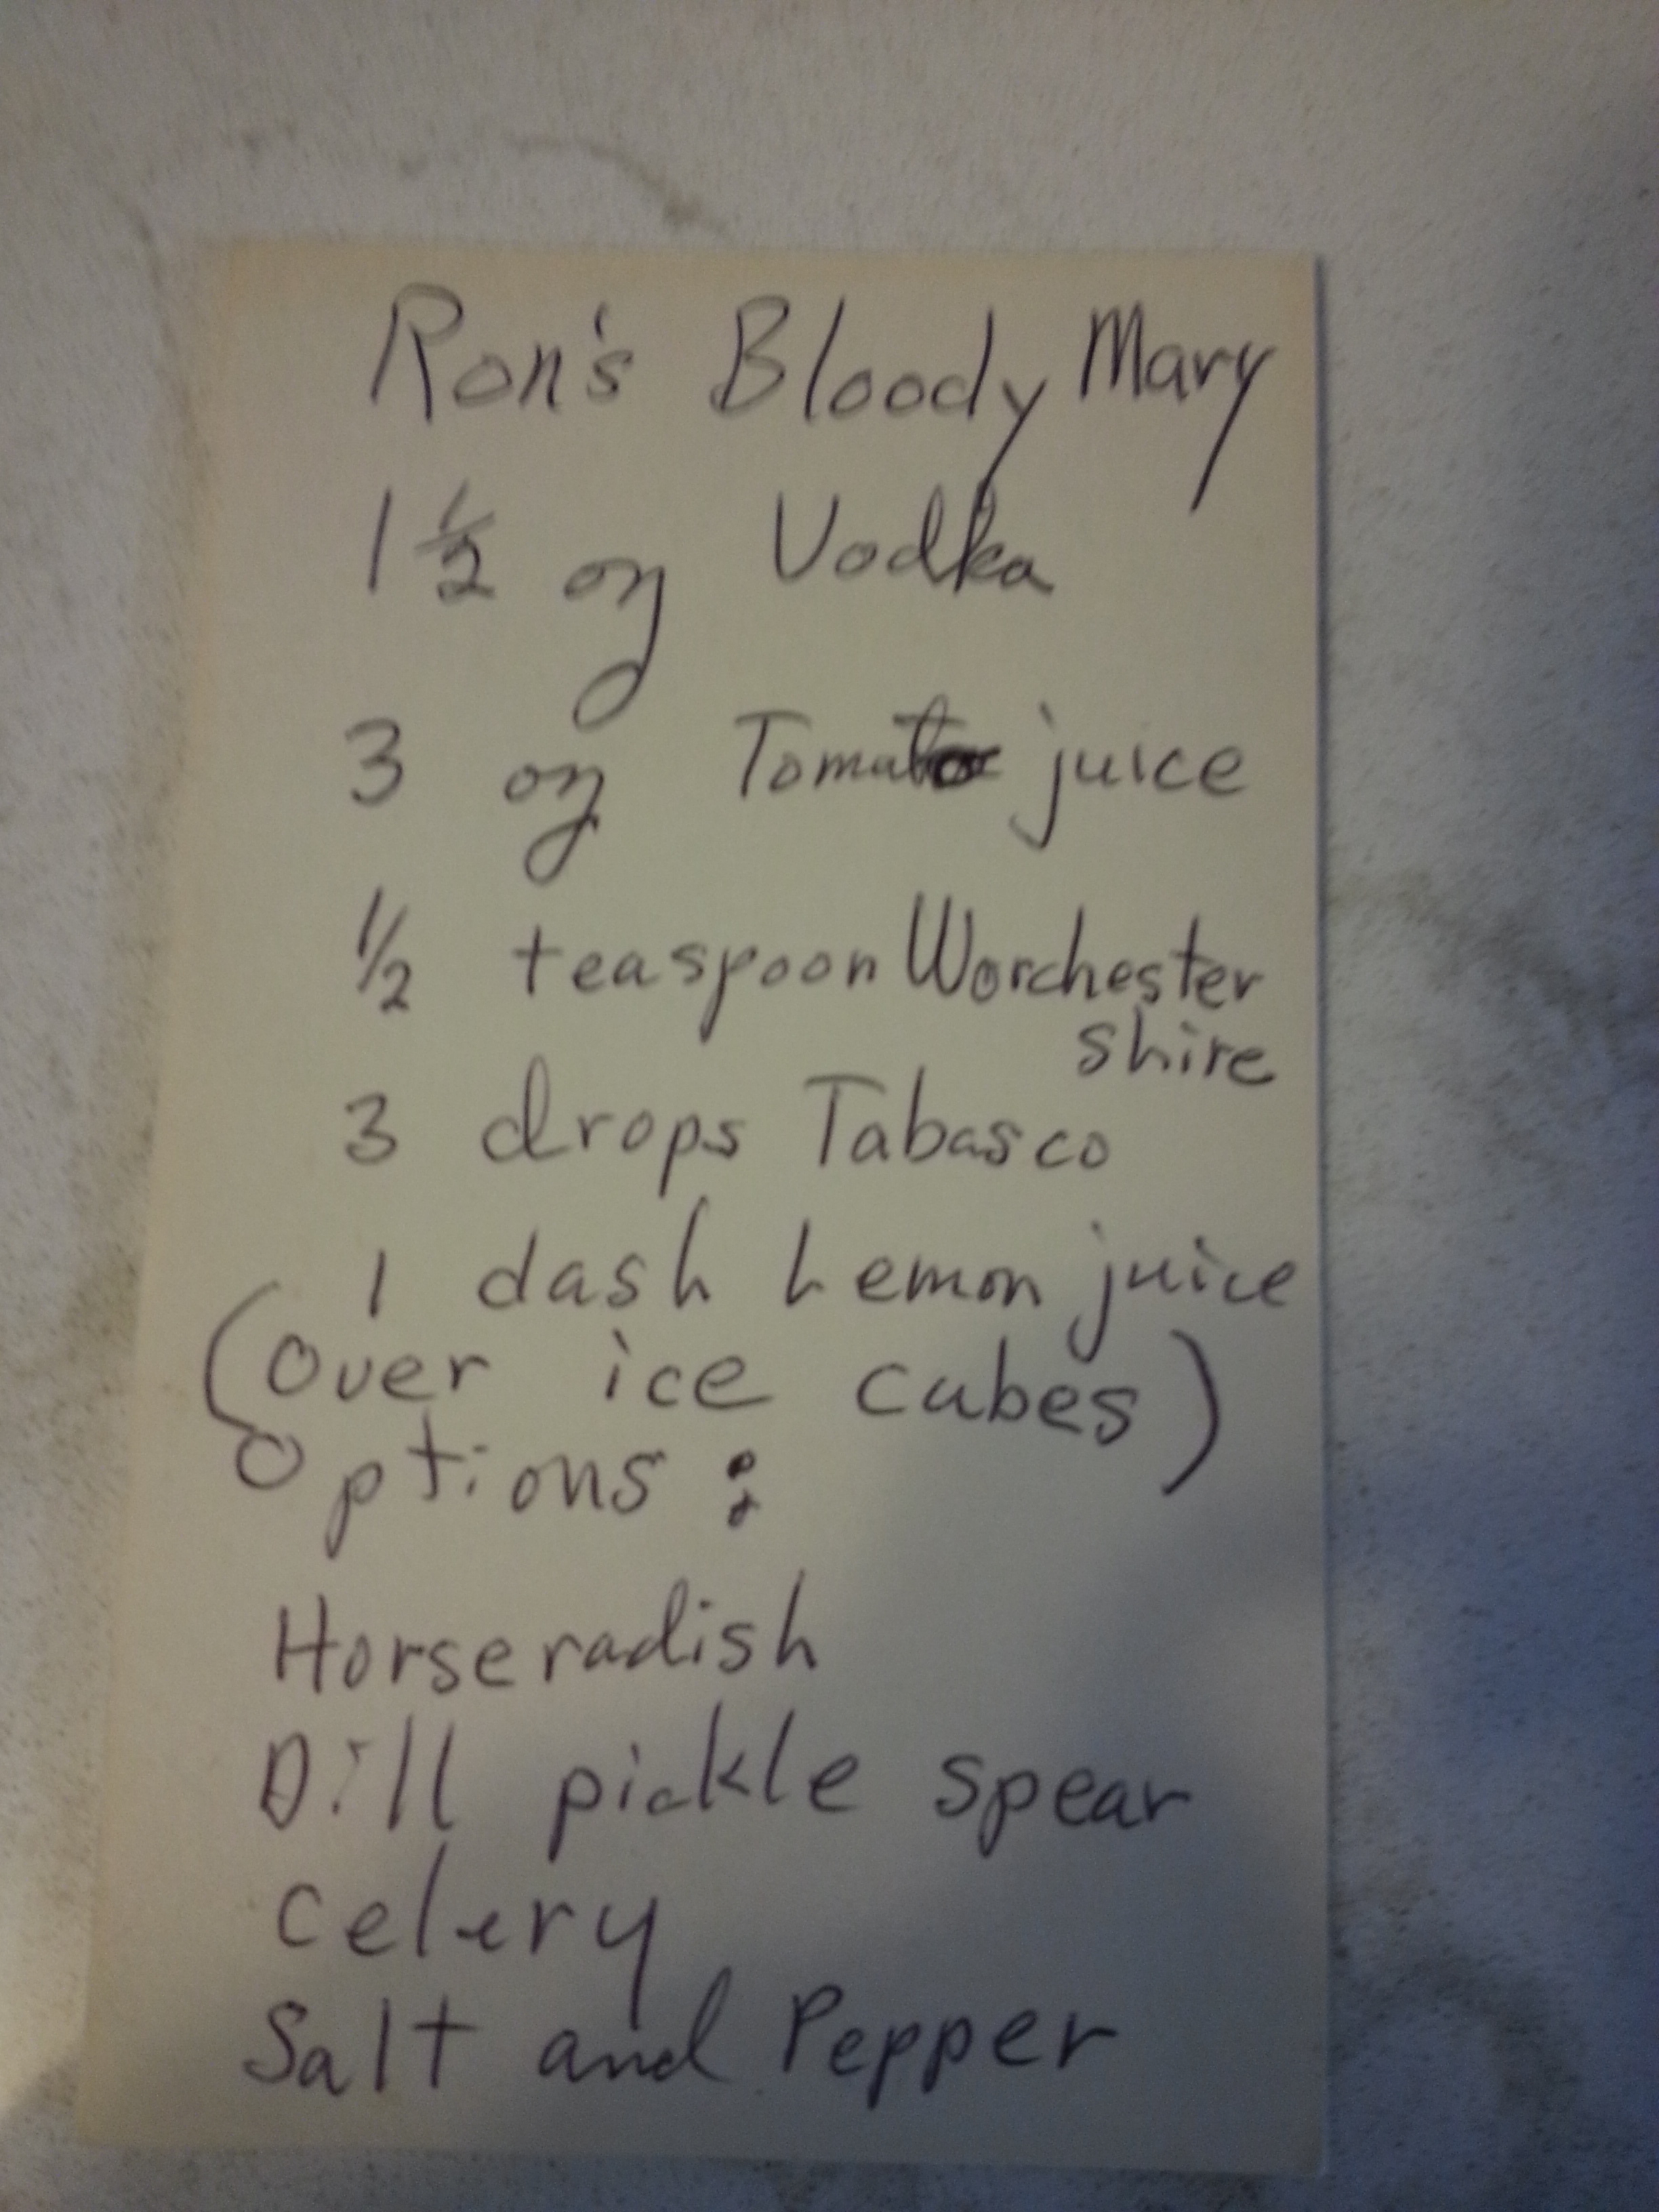 Ron's Bloody Mary
1 1/2 oz Vodka
3 oz Tomato juice
1/2 teaspoon Worchester
shire
3 drops Tabasco
1 dash Lemon juice
(over ice cubes)
Options:
Horseradish
Dill pickle spear
Celery
Salt and Pepper